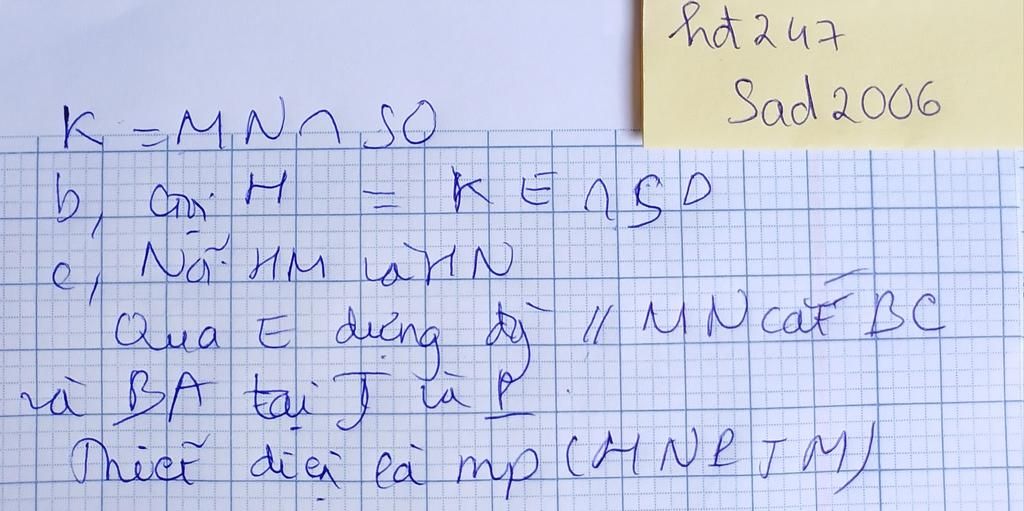 hđ247
Sad2006
K = MN ∩ SO
b, Gọi H = KE ∩ SD
c, Nối HM và HN
Qua E dựng đg // MN cắt BC
và BA tại J và P.
Thiết diện là mp (HNPJM)